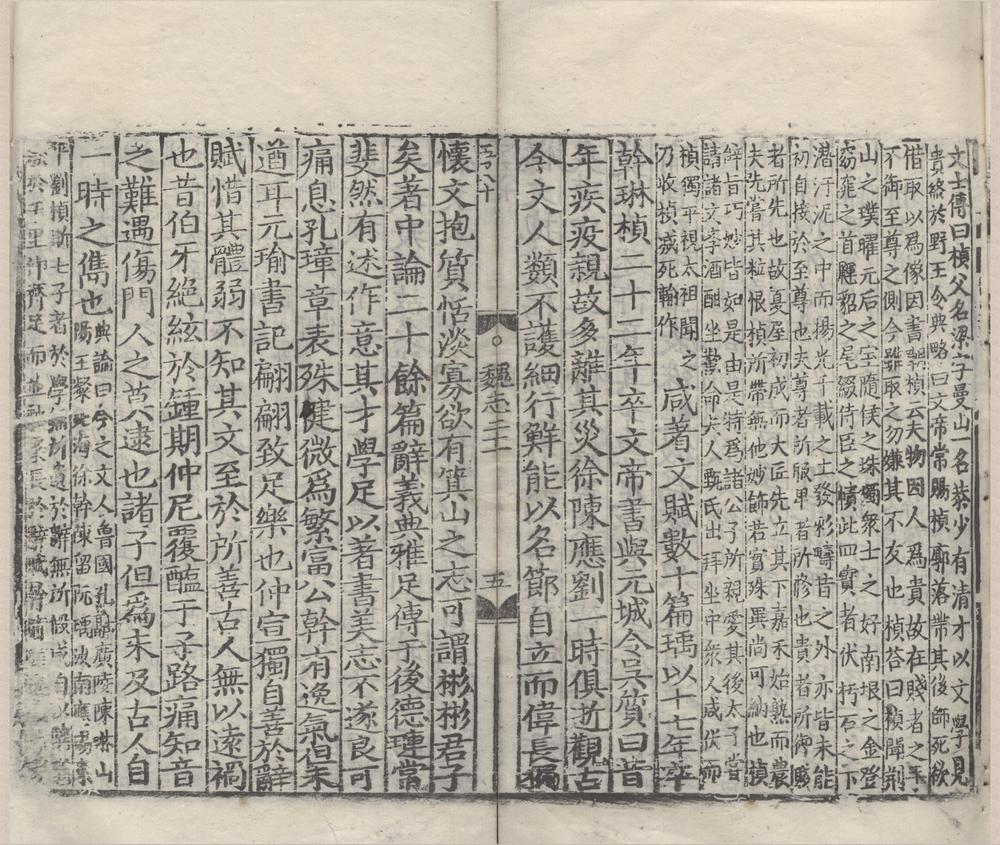 文士傳曰楨父名梁字曼山一名恭少有清才以文學見
貴終於野王令典略曰文帝常賜楨廓落帶其後師死欲
借取以爲像因書嘲楨云夫物因人爲貴故在賤者之手
不御至尊之側今雖取之勿嫌其不反也楨答曰楨聞荆
山之璞曜元后之宝隨侯之珠燭衆士之好南垠之金登
窈窕之首鼲貂之尾綴侍臣之幘此四寳者伏朽石之下
潜汙泥之中而揚光千載之上發彩疇昔之外亦皆未能
初自接於至尊也夫尊者所服卑者所修也貴者所御賤
者所先也故夏屋初成而大匠先立其下嘉禾始熟而農
夫先嘗其粒恨楨所帶無他妙飾若實殊異尚可納也楨
辭旨巧妙皆如是由是特爲諸公子所親愛其後太子嘗
請諸文學酒酣坐歡命夫人甄氏出拜坐中衆人咸伏而
楨獨平視太祖聞之
乃收楨减死輸作
咸著文賦數十篇瑀以十七年卒
幹琳楨二十二年卒文帝書與元城令吳質曰昔
年疾疫親故多離其災徐陳應劉一時俱逝觀古
今文人類不護細行鮮能以名節自立而偉長獨
魏志二十一
五
懷文抱質恬淡寡欲有箕山之志可謂彬彬君子
矣著中論二十餘篇辭義典雅足傳于後德璉常
斐然有述作意其才學足以著書美志不遂良可
痛息孔璋章表殊健微爲繁富公幹有逸氣但未
遒耳元瑜書記翩翩致足樂也仲宣獨自善於辭
賦惜其體弱不知其文至於所善古人無以遠禍
也昔伯牙絶絃於鍾期仲尼覆醢于子路痛知音
之難遇傷門人之莫逮也諸子但爲未及古人自
一時之儁也
典論曰今之文人魯國孔融廣陵陳琳山
陽王粲北海徐幹陳留阮瑀汝南應瑒東
平劉楨斯七子者於學無所遺於辭無所假咸自以騁
於千里仰齊足而並馳粲長於辭賦